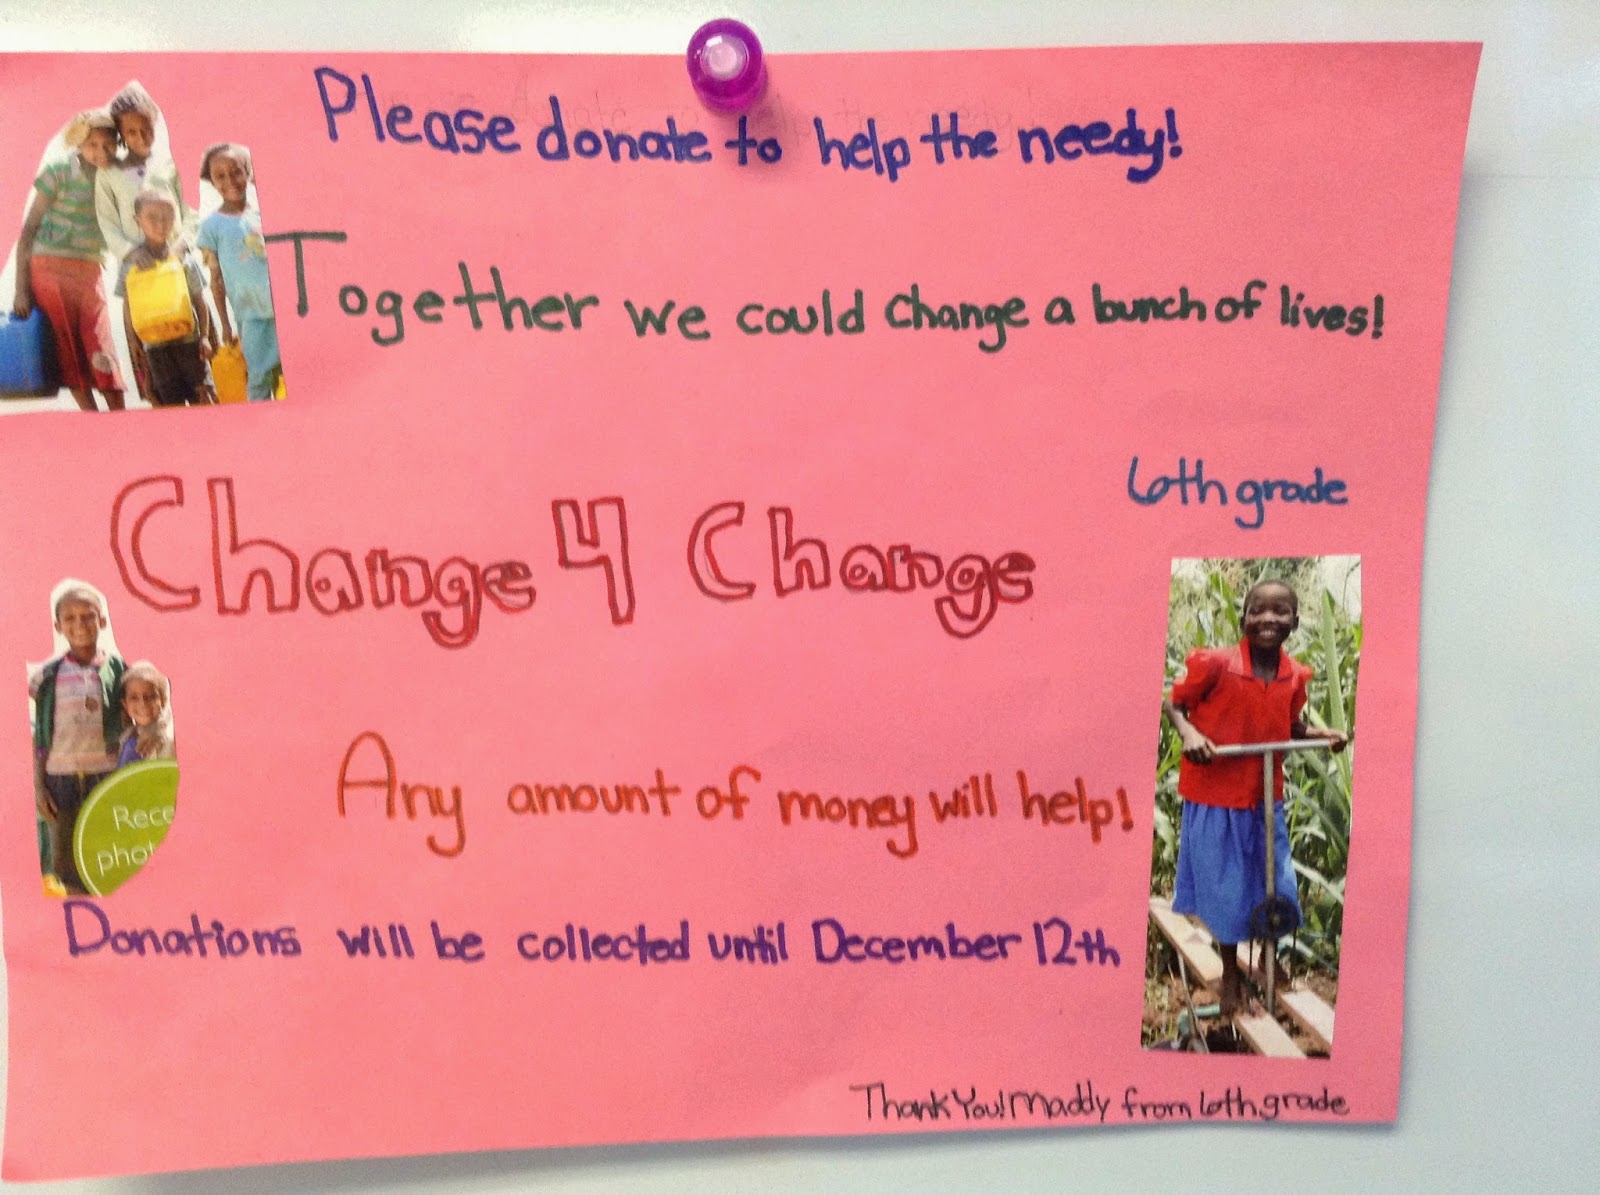 Please donate to help the needy!
Together we could change a bunch of lives!
6th grade
Change 4 Change
Any amount of money will help!
Rece
phot
Donations will be collected until December 12th
Thank You! Maddy from 6th grade